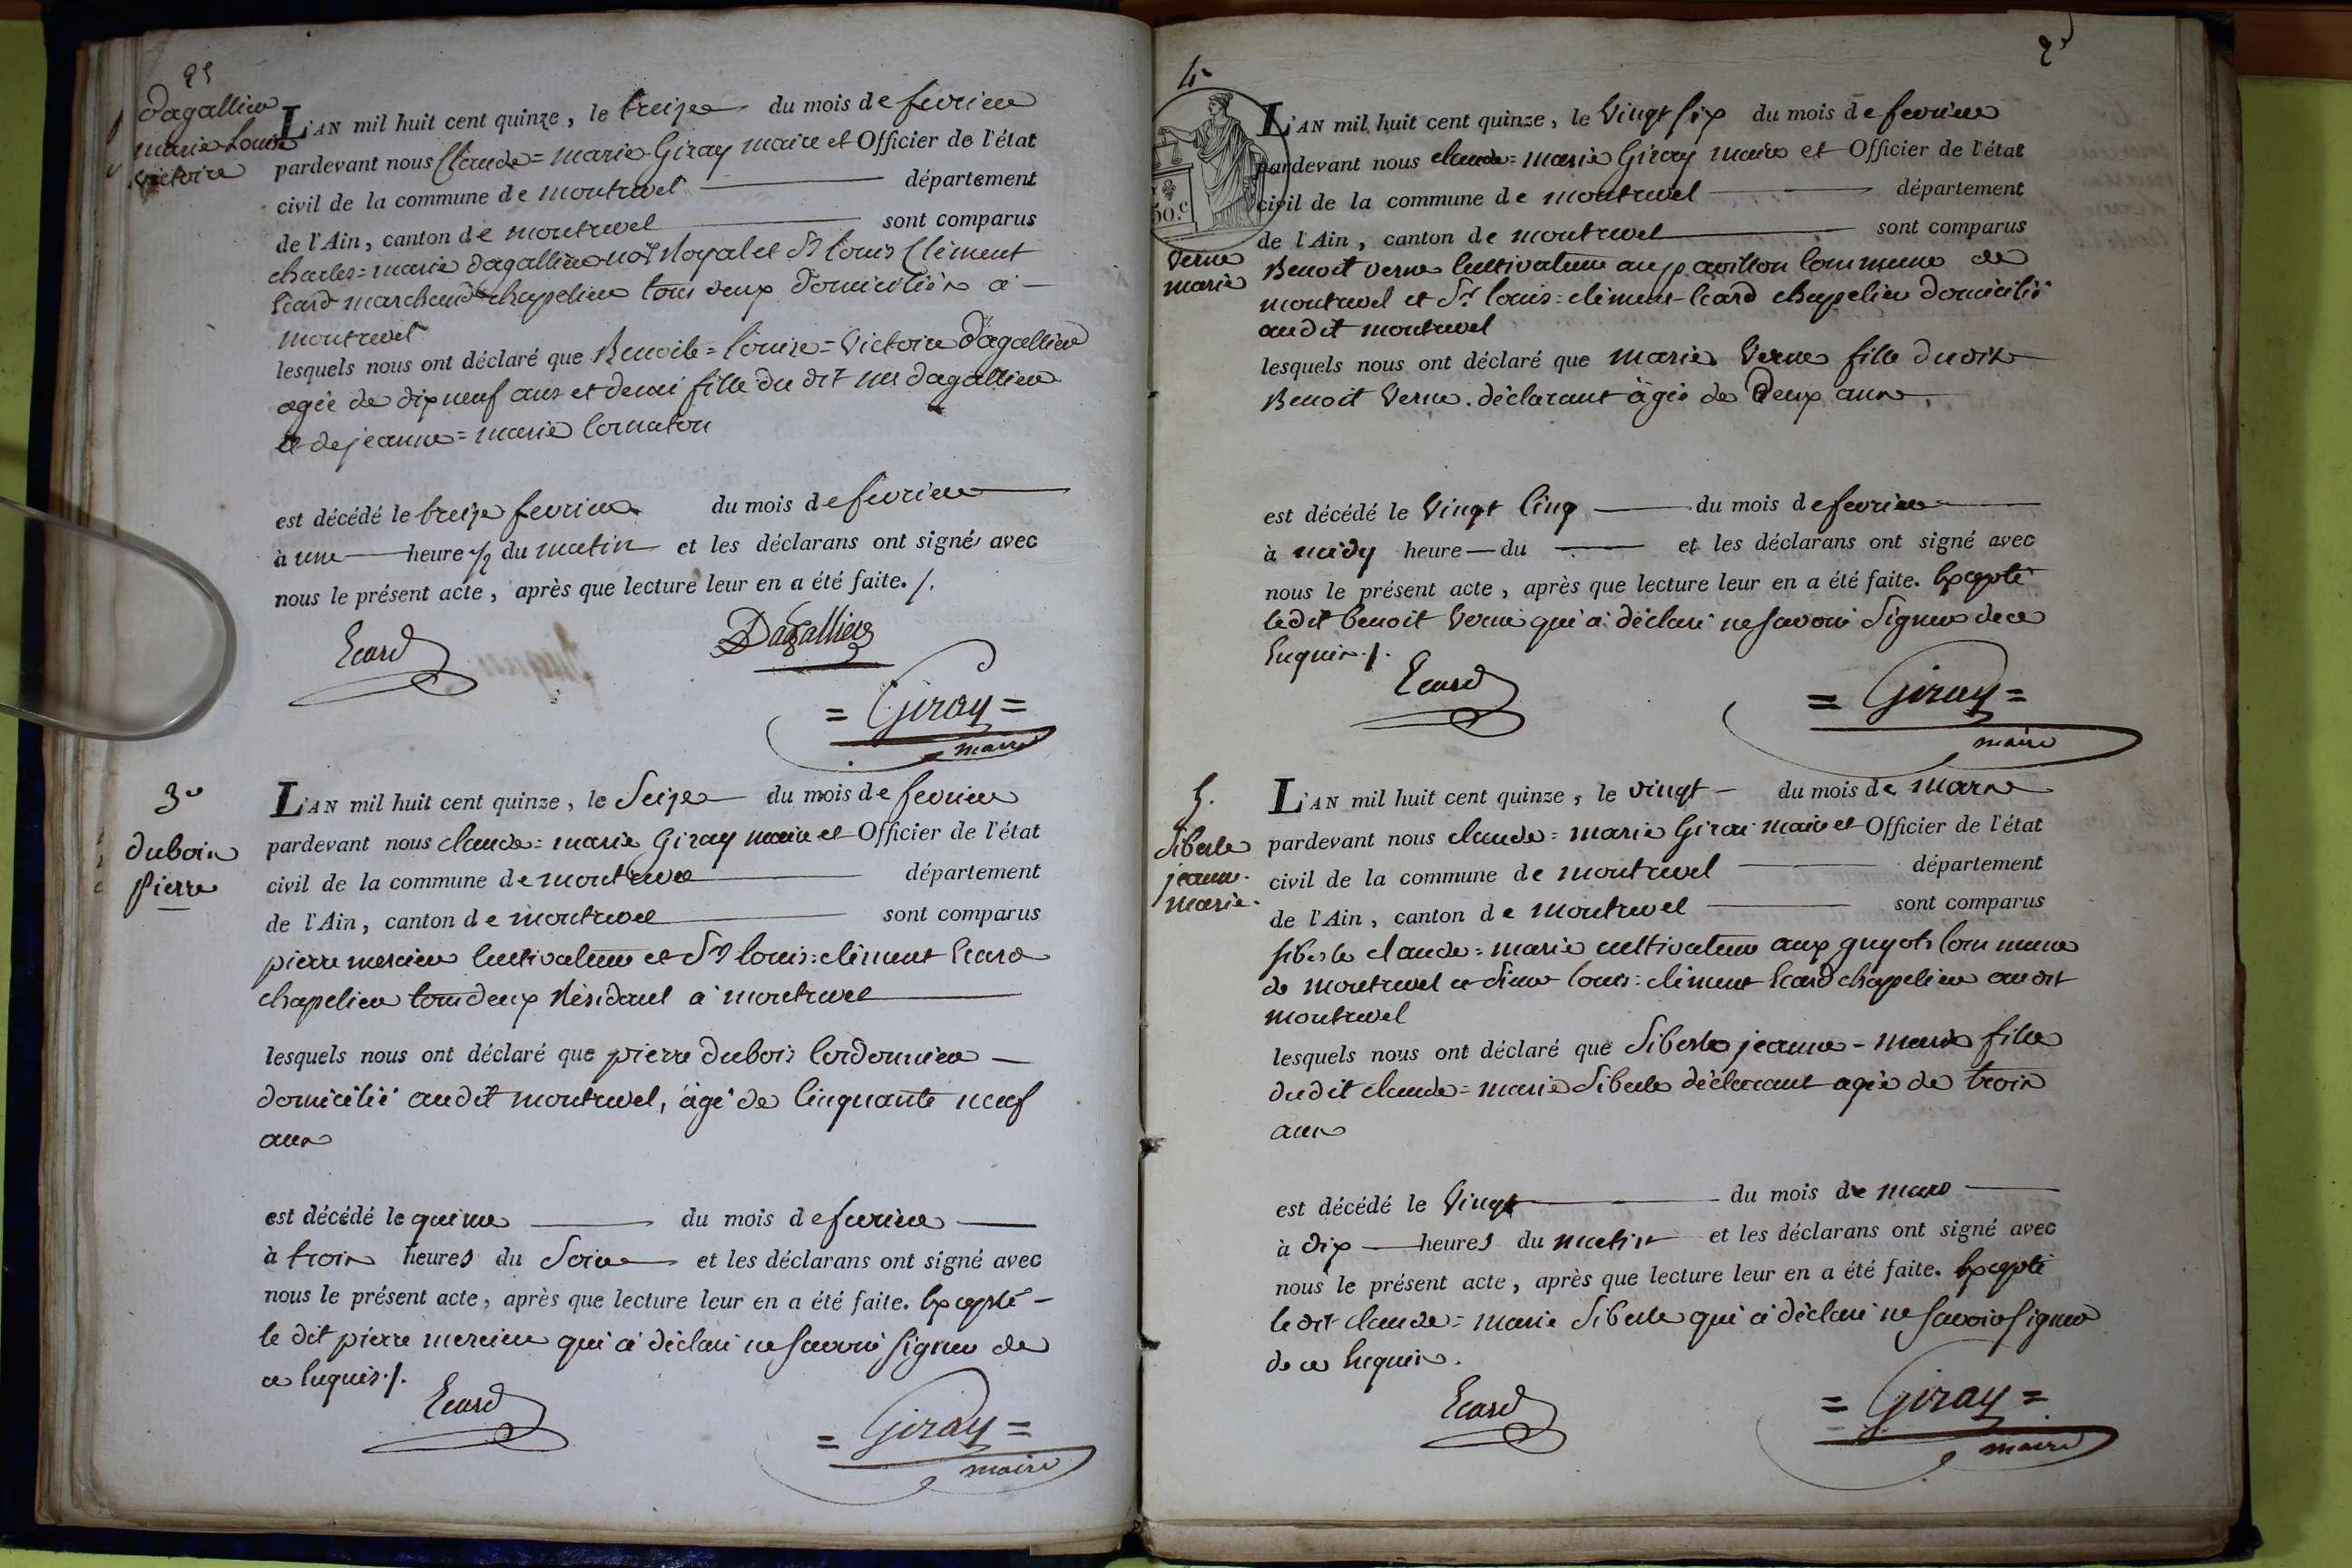 2e
Dagallier
marie Louise
victoire
L'AN mil huit cent quinze, le treize du mois de fevrier
pardevant nous Claude = marie Giray maire et Officier de l'état
civil de la commune de montrevel département
de l'Ain, canton de montrevel sont comparus
charles = marie dagallier nore Royal et Sr louis Clément
Ecard marchand chapelier tous deux domiciliés à
montrevel
lesquels nous ont déclaré que Benoite = louise = Victoire Dagallier
agée de dix neuf ans et demi fille du dit dagallier
et de jeanne = marie Cornaton
est décédé le treize fevrier du mois de fevrier
à une heure 1/2 du matin et les déclarans ont signé avec
nous le présent acte, après que lecture leur en a été faite. /.
Ecard Dagallier
= Giray =
maire
3e
dubois
pierre
L'AN mil huit cent quinze, le Seize du mois de fevrier
pardevant nous claude = marie Giray maire et Officier de l'état
civil de la commune de montrevel département
de l'Ain, canton de montrevel sont comparus
pierre mercier Cultivateur et Sr louis = clément Ecard
chapelier tous deux Résidant à montrevel
lesquels nous ont déclaré que pierre dubois Cordonnier
domicilié audit montrevel, âgé de Cinquante neuf
ans
est décédé le quinze du mois de fevrier
à trois heures du Soir et les déclarans ont signé avec
nous le présent acte, après que lecture leur en a été faite. Excepté
le dit pierre mercier qui a déclaré ne savoir signer de
ce Enquis ./.
Ecard
= Giray =
maire
2e
4e
50.c
verne
marie
L'AN mil huit cent quinze, le Vingt six du mois de fevrier
pardevant nous claude = marie Giray maire et Officier de l'état
civil de la commune de montrevel département
de l'Ain, canton de montrevel sont comparus
Benoit verne Cultivateur au pavillon Commune de
montrevel et Sr louis = clément Ecard chapelier domicilié
audit montrevel
lesquels nous ont déclaré que marie Verne fille dudit
Benoit Verne déclarant âgée de Deux ans
est décédé le Vingt Cinq du mois de fevrier
à midy heure du et les déclarans ont signé avec
nous le présent acte, après que lecture leur en a été faite. Excepté
ledit benoit Verne qui a déclaré ne savoir Signer de ce
Enquis ./.
Ecard
= Giray =
maire
5.
Siberle
jeanne
marie
L'AN mil huit cent quinze, le vingt du mois de mars
pardevant nous claude = marie Girai maire et Officier de l'état
civil de la commune de montrevel département
de l'Ain, canton de montrevel sont comparus
siberle claude = marie cultivateur aux guyots Commune
de montrevel et sieur louis = clément Ecard chapelier audit
montrevel
lesquels nous ont déclaré que Siberle jeanne - marie fille
dudit claude = marie Siberle déclarant agée de trois
ans
est décédé le Vingt du mois de mars
à dix heures du matin et les déclarans ont signé avec
nous le présent acte, après que lecture leur en a été faite. Excepté
le dit claude = marie Siberle qui a déclaré ne savoir signer
de ce Enquis.
Ecard
= Giray =
maire